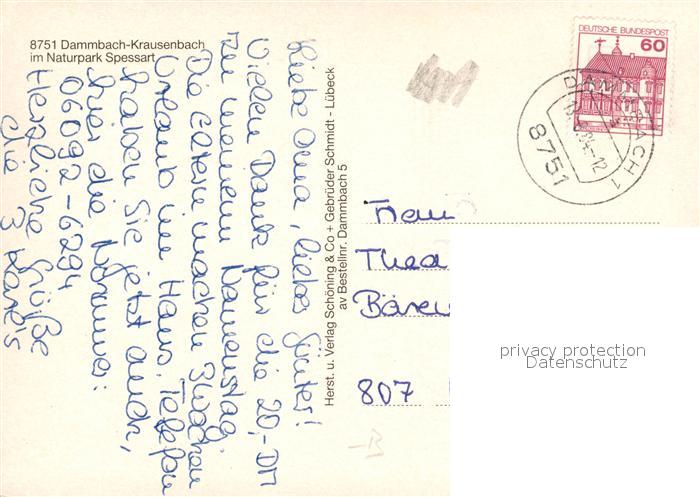 8751 Dammbach-Krausenbach
im Naturpark Spessart
Liebe Oma, lieber Günter!
Vielen Dank für die 20,-DM
zu meinem Namenstag.
Die Eltern machen 3 Wochen
Urlaub im Haus. Telefon
haben Sie jetzt auch,
hier die Nummer:
06092-6294
Herzliche Grüße
die 3
Herst. u. Verlag Schöning & Co + Gebrüder Schmidt - Lübeck
av Bestellnr. Dammbach 5
DEUTSCHE BUNDESPOST
60
DAMMBACH 1
8751
Frau
Thea
Bären
807
privacy protection
Datenschutz